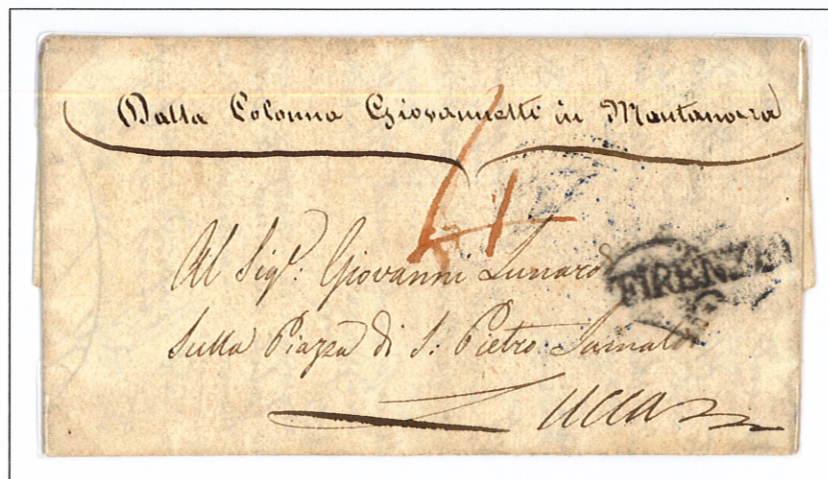 Dalla Colonna Giovannetti in Montanara
Al Sigr. Giovanni Lunardi
Sulla Piazza di S. Pietro Somaldi
FIRENZE
Lucca